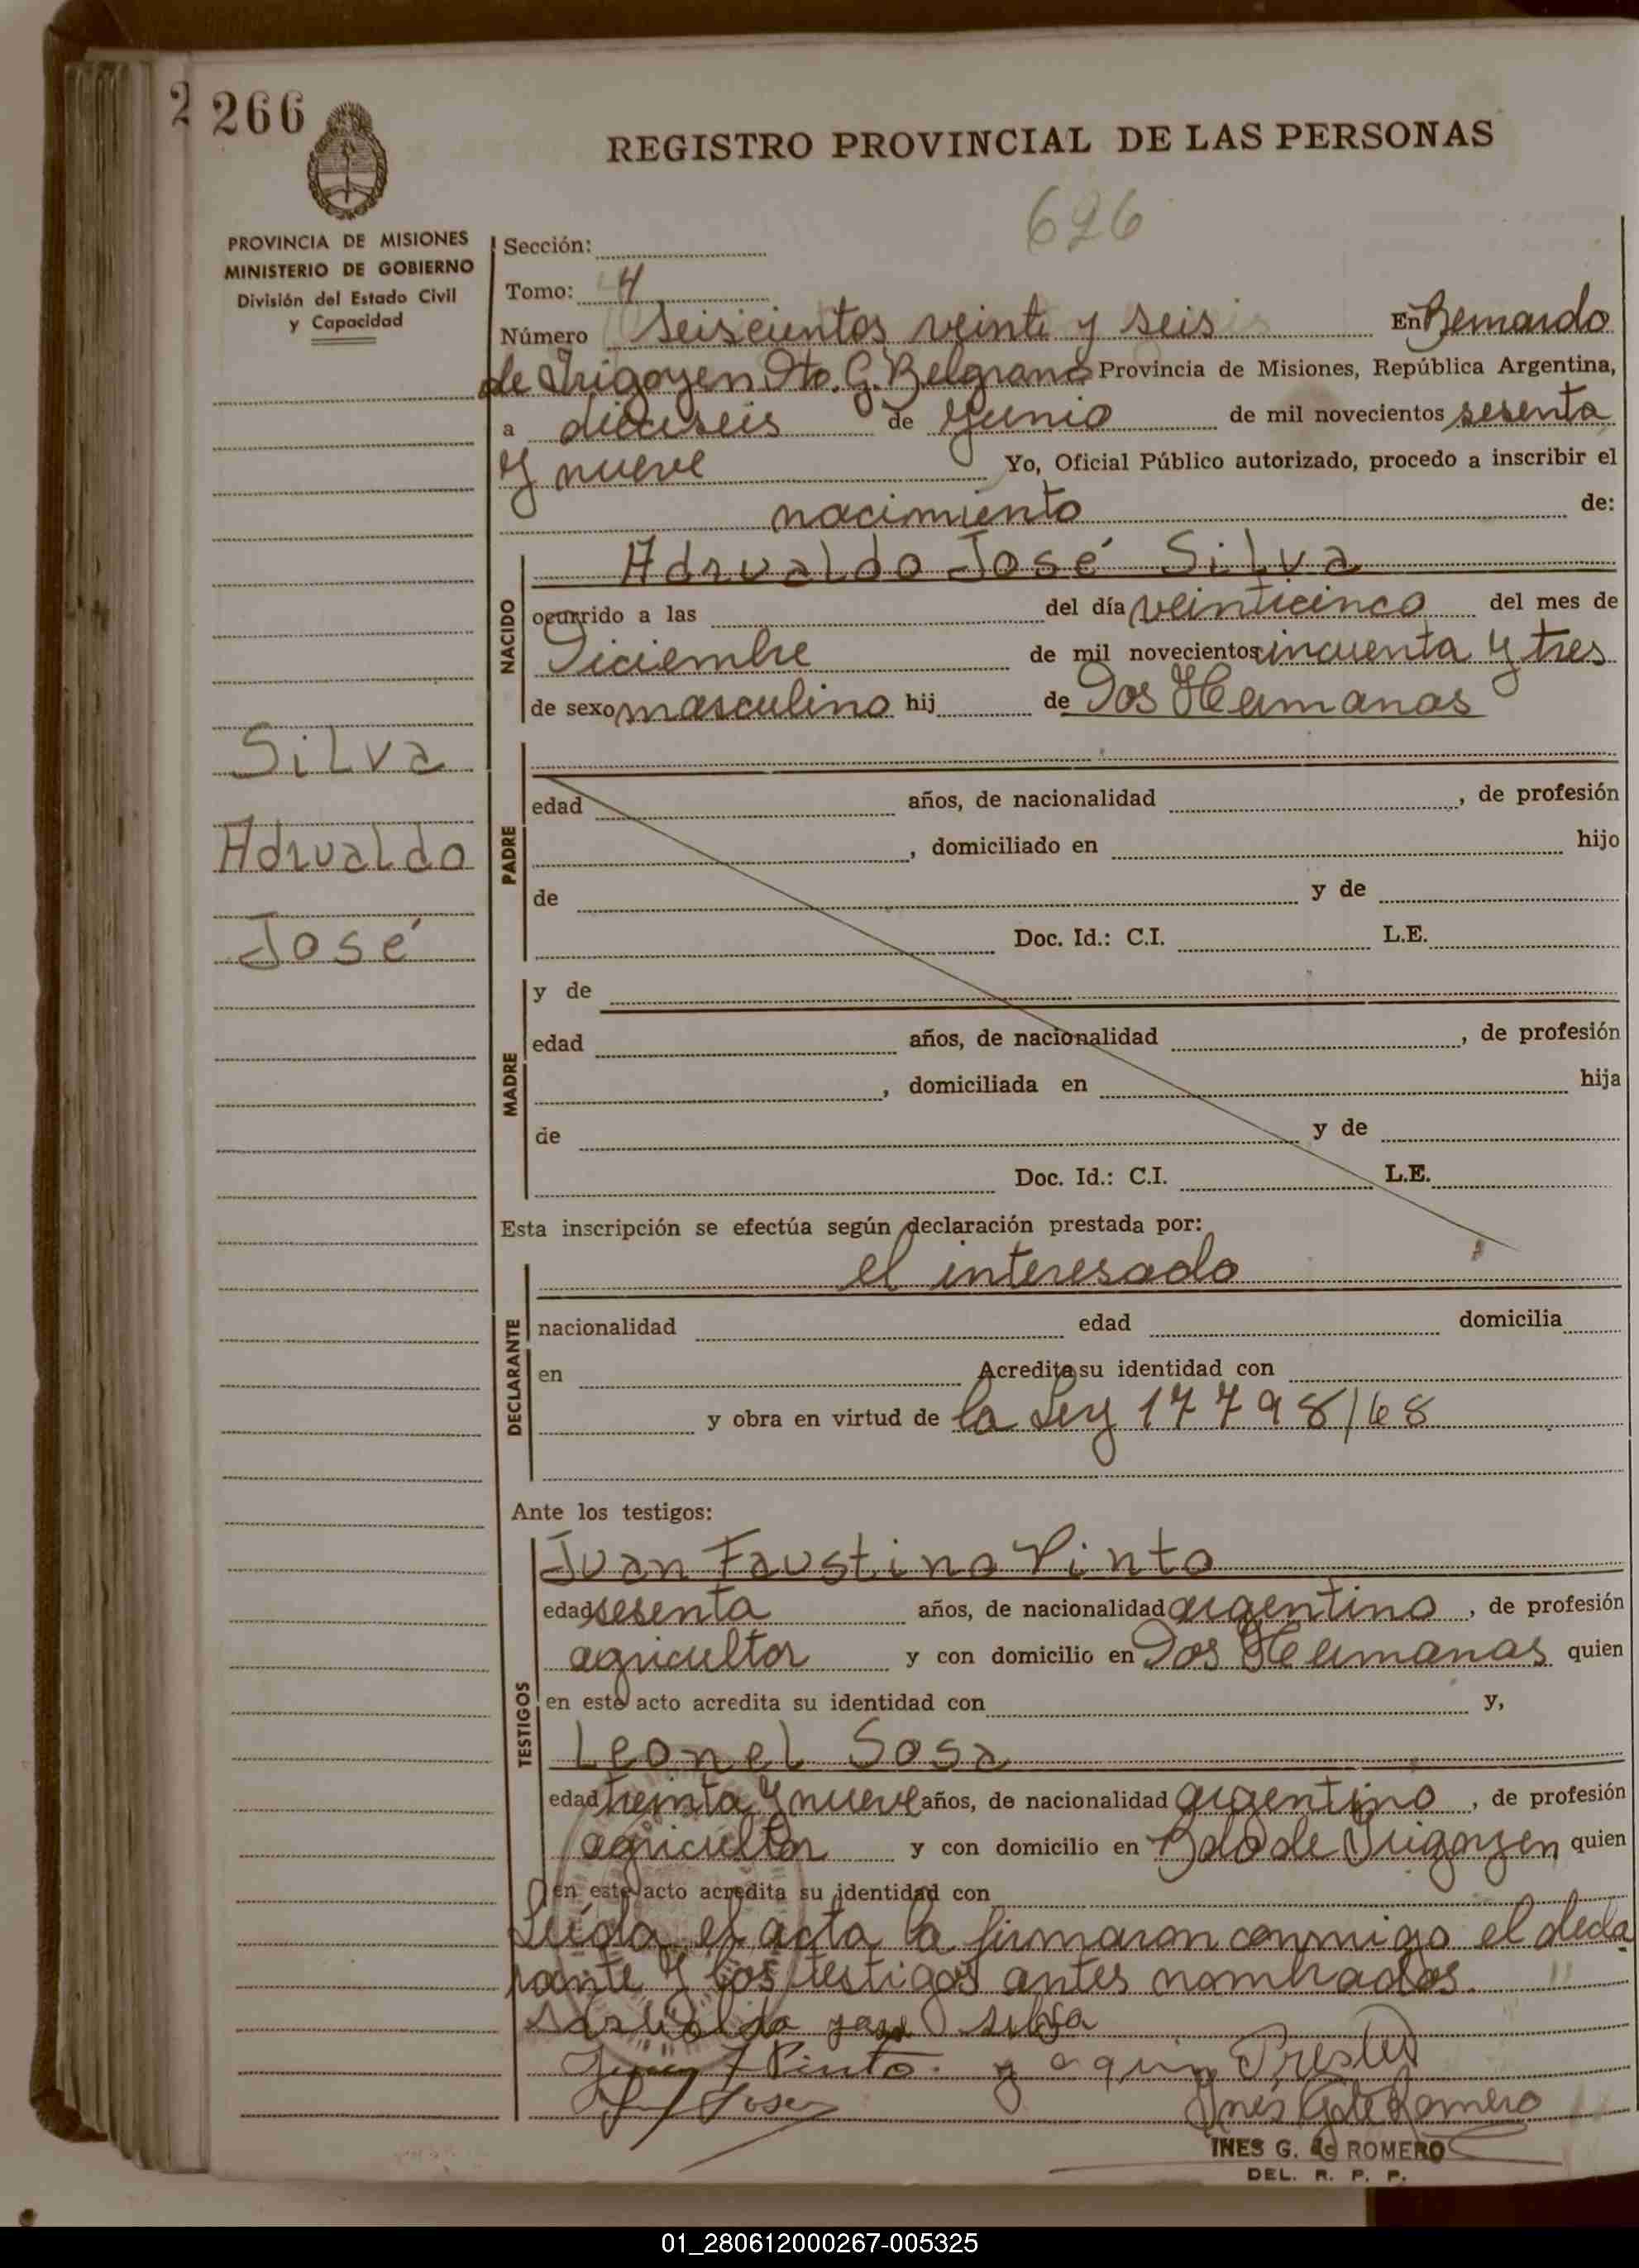 266
REGISTRO PROVINCIAL DE LAS PERSONAS
626
PROVINCIA DE MISIONES
MINISTERIO DE GOBIERNO
División del Estado Civil
y Capacidad
Sección:
Tomo: 4
Número seiscientos veinte y seis En Bernardo
de Irigoyen Dto. G. Belgrano Provincia de Misiones, República Argentina,
a dieciseis de Junio de mil novecientos sesenta
y nueve Yo, Oficial Público autorizado, procedo a inscribir el
nacimiento de:
Adrualdo José Silva
NACIDO
ocurrido a las del día veinticinco del mes de
Diciembre de mil novecientos cincuenta y tres
de sexo masculino hij de Dos Hermanas
Silva
Adrualdo
José
PADRE
edad años, de nacionalidad , de profesión
, domiciliado en hijo
de y de
Doc. Id.: C.I. L.E.
MADRE
y de
edad años, de nacionalidad , de profesión
, domiciliada en hija
de y de
Doc. Id.: C.I. L.E.
Esta inscripción se efectúa según declaración prestada por:
el interesado
DECLARANTE
nacionalidad edad domicilia
en Acredita su identidad con
y obra en virtud de la Ley 17798/68
Ante los testigos:
TESTIGOS
Juan Faustino Pinto
edad sesenta años, de nacionalidad argentino, de profesión
agricultor y con domicilio en Dos Hermanas quien
en este acto acredita su identidad con y,
Leonel Sosa
edad treinta y nueve años, de nacionalidad argentino, de profesión
agricultor y con domicilio en Bdo de Irigoyen quien
en este acto acredita su identidad con
Leída el acta la firmaron conmigo el decla
rante y los testigos antes nombrados.
Adrualdo jose silva
Juan F Pinto.
Sosa Inés G de Romero
INES G. de ROMERO
DEL. R. P. P.
01_280612000267-005325